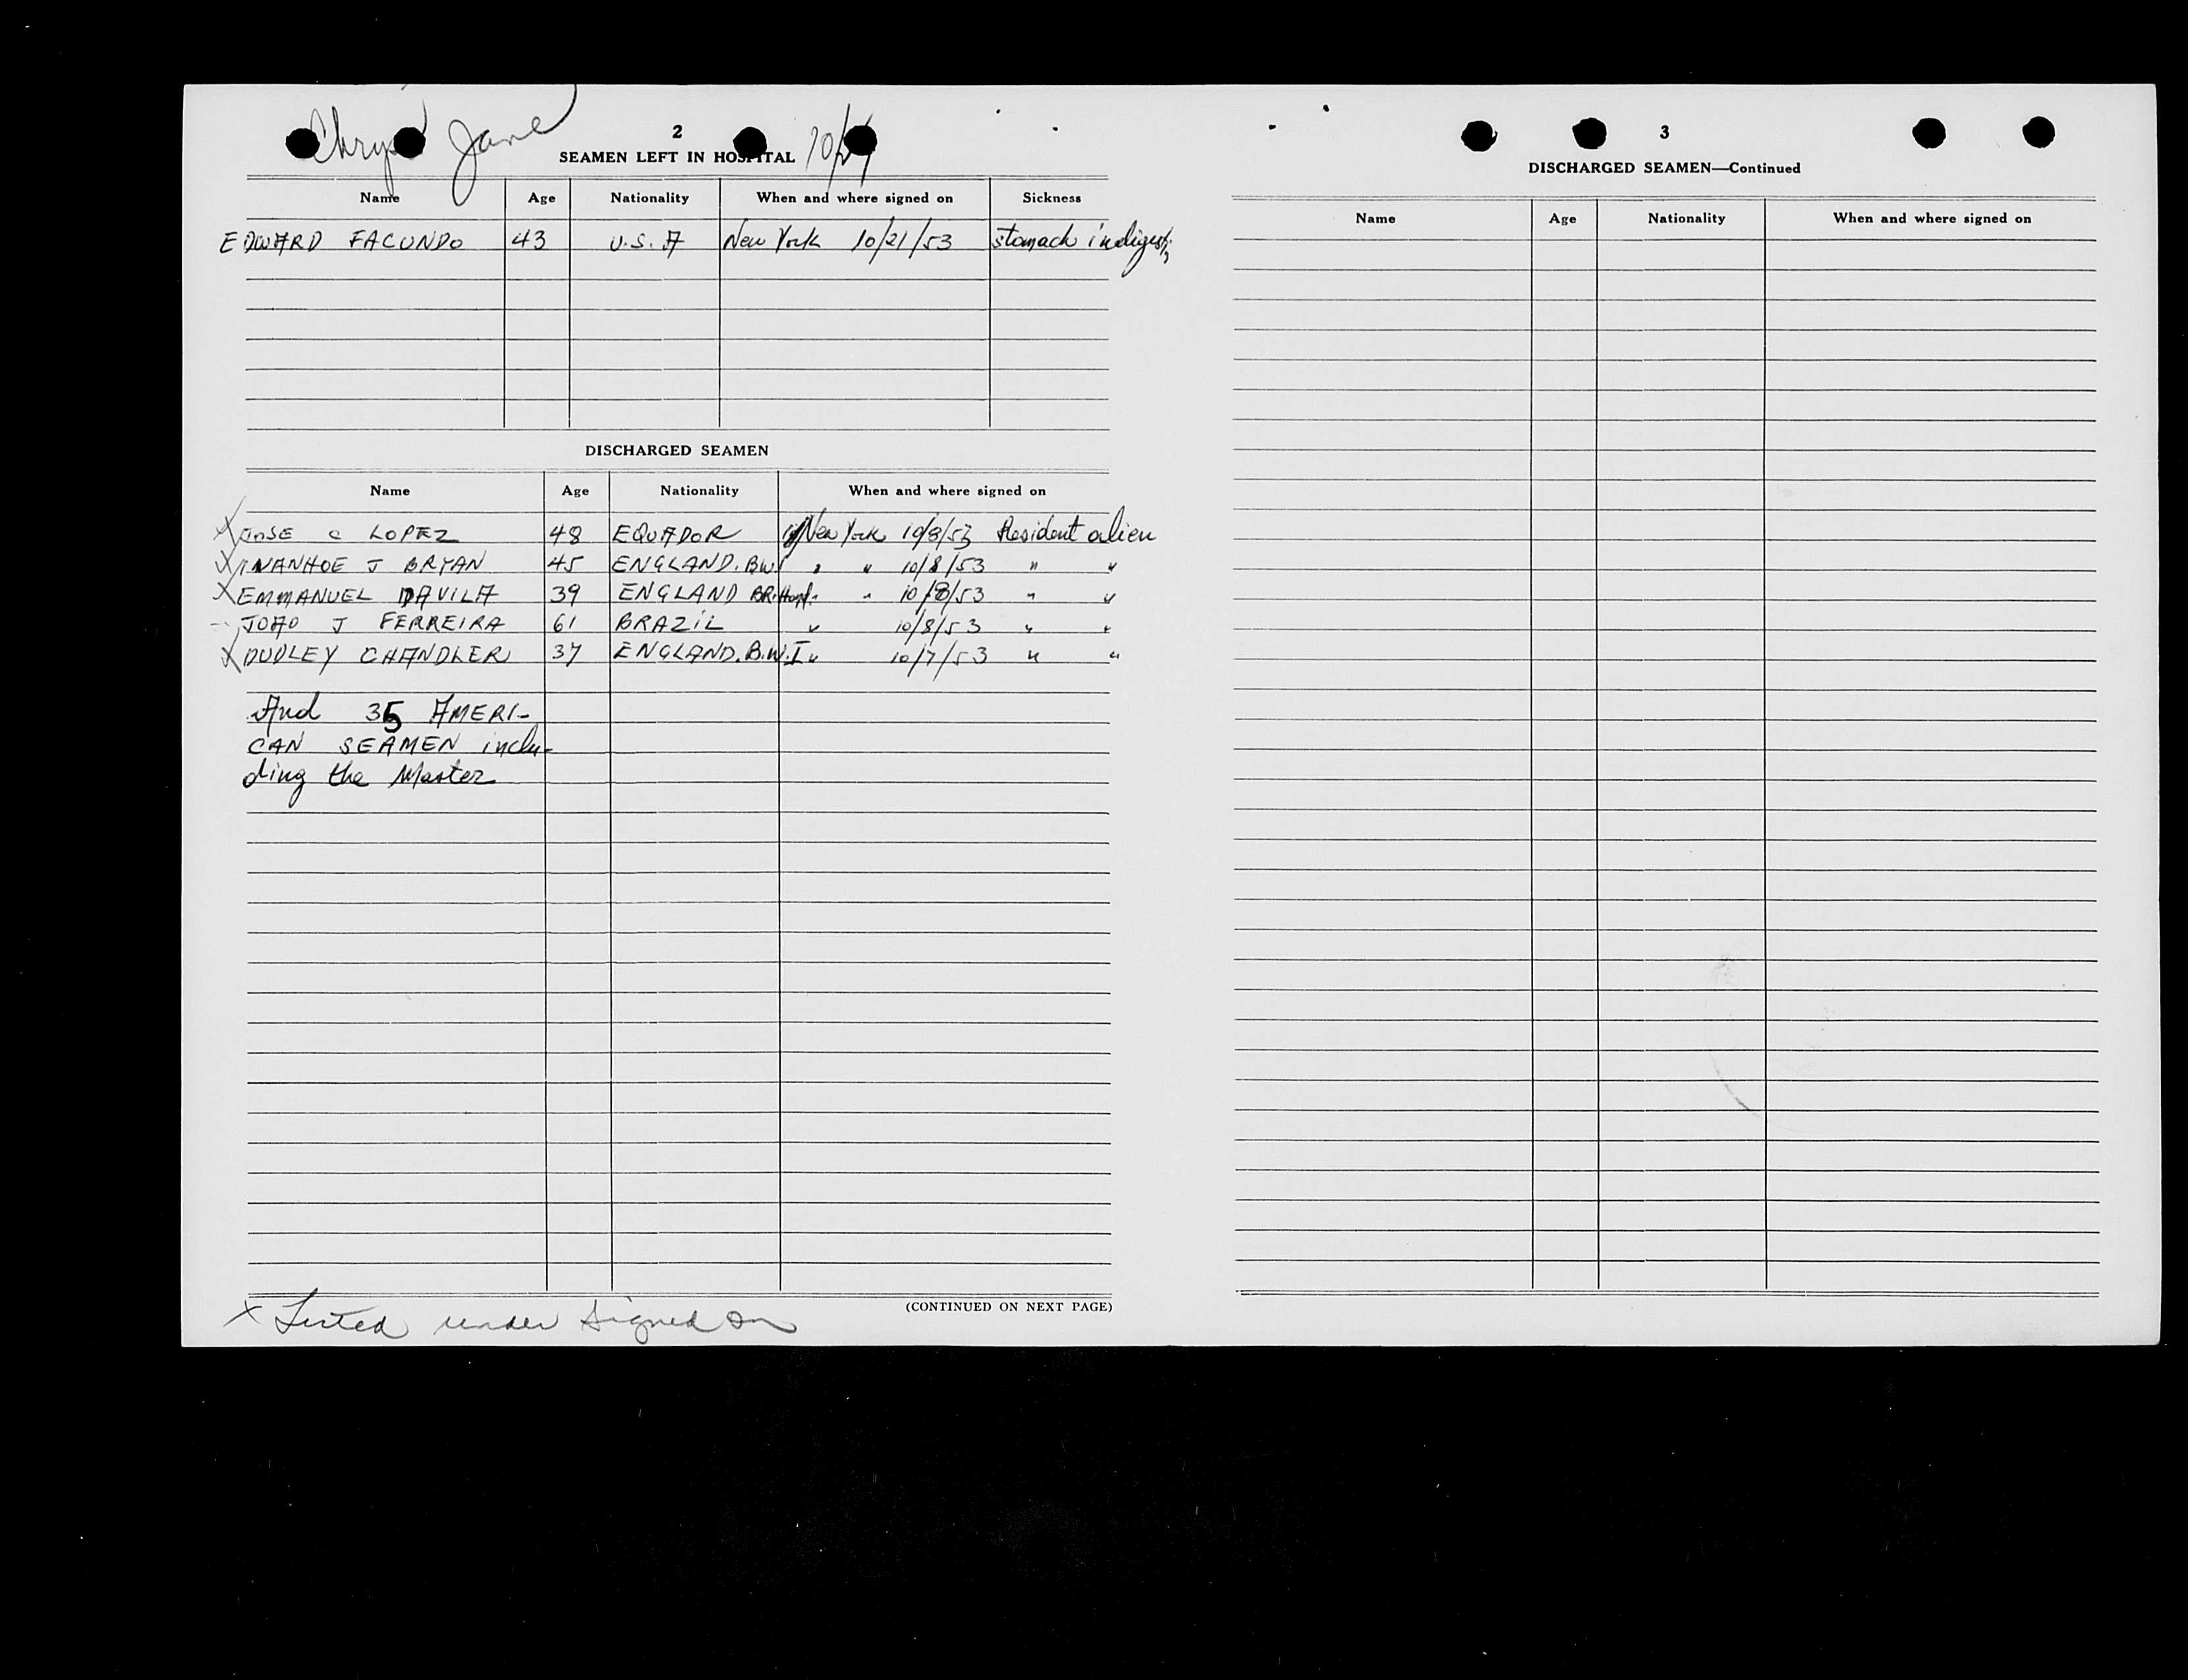 Jane
2
SEAMEN LEFT IN HOSPITAL
Name Age Nationality When and where signed on Sickness
EDWARD FACUNDO 43 U.S.A New York 10/21/53 stomach indigest.
DISCHARGED SEAMEN
Name Age Nationality When and where signed on
X JOSE C LOPEZ 48 EQUADOR New York 10/8/53 Resident alien
X IVANHOE J BRYAN 45 ENGLAND. BWI " " 10/8/53 " "
X EMMANUEL DAVILA 39 ENGLAND BR. " " 10/8/53 " "
JOAO J FERREIRA 61 BRAZIL " 10/8/53 " "
X DUDLEY CHANDLER 37 ENGLAND. B.W.I " 10/7/53 " "
And 35 AMERI-
CAN SEAMEN inclu-
ding the Master
(CONTINUED ON NEXT PAGE)
X Listed under signed on
3
DISCHARGED SEAMEN—Continued
Name Age Nationality When and where signed on